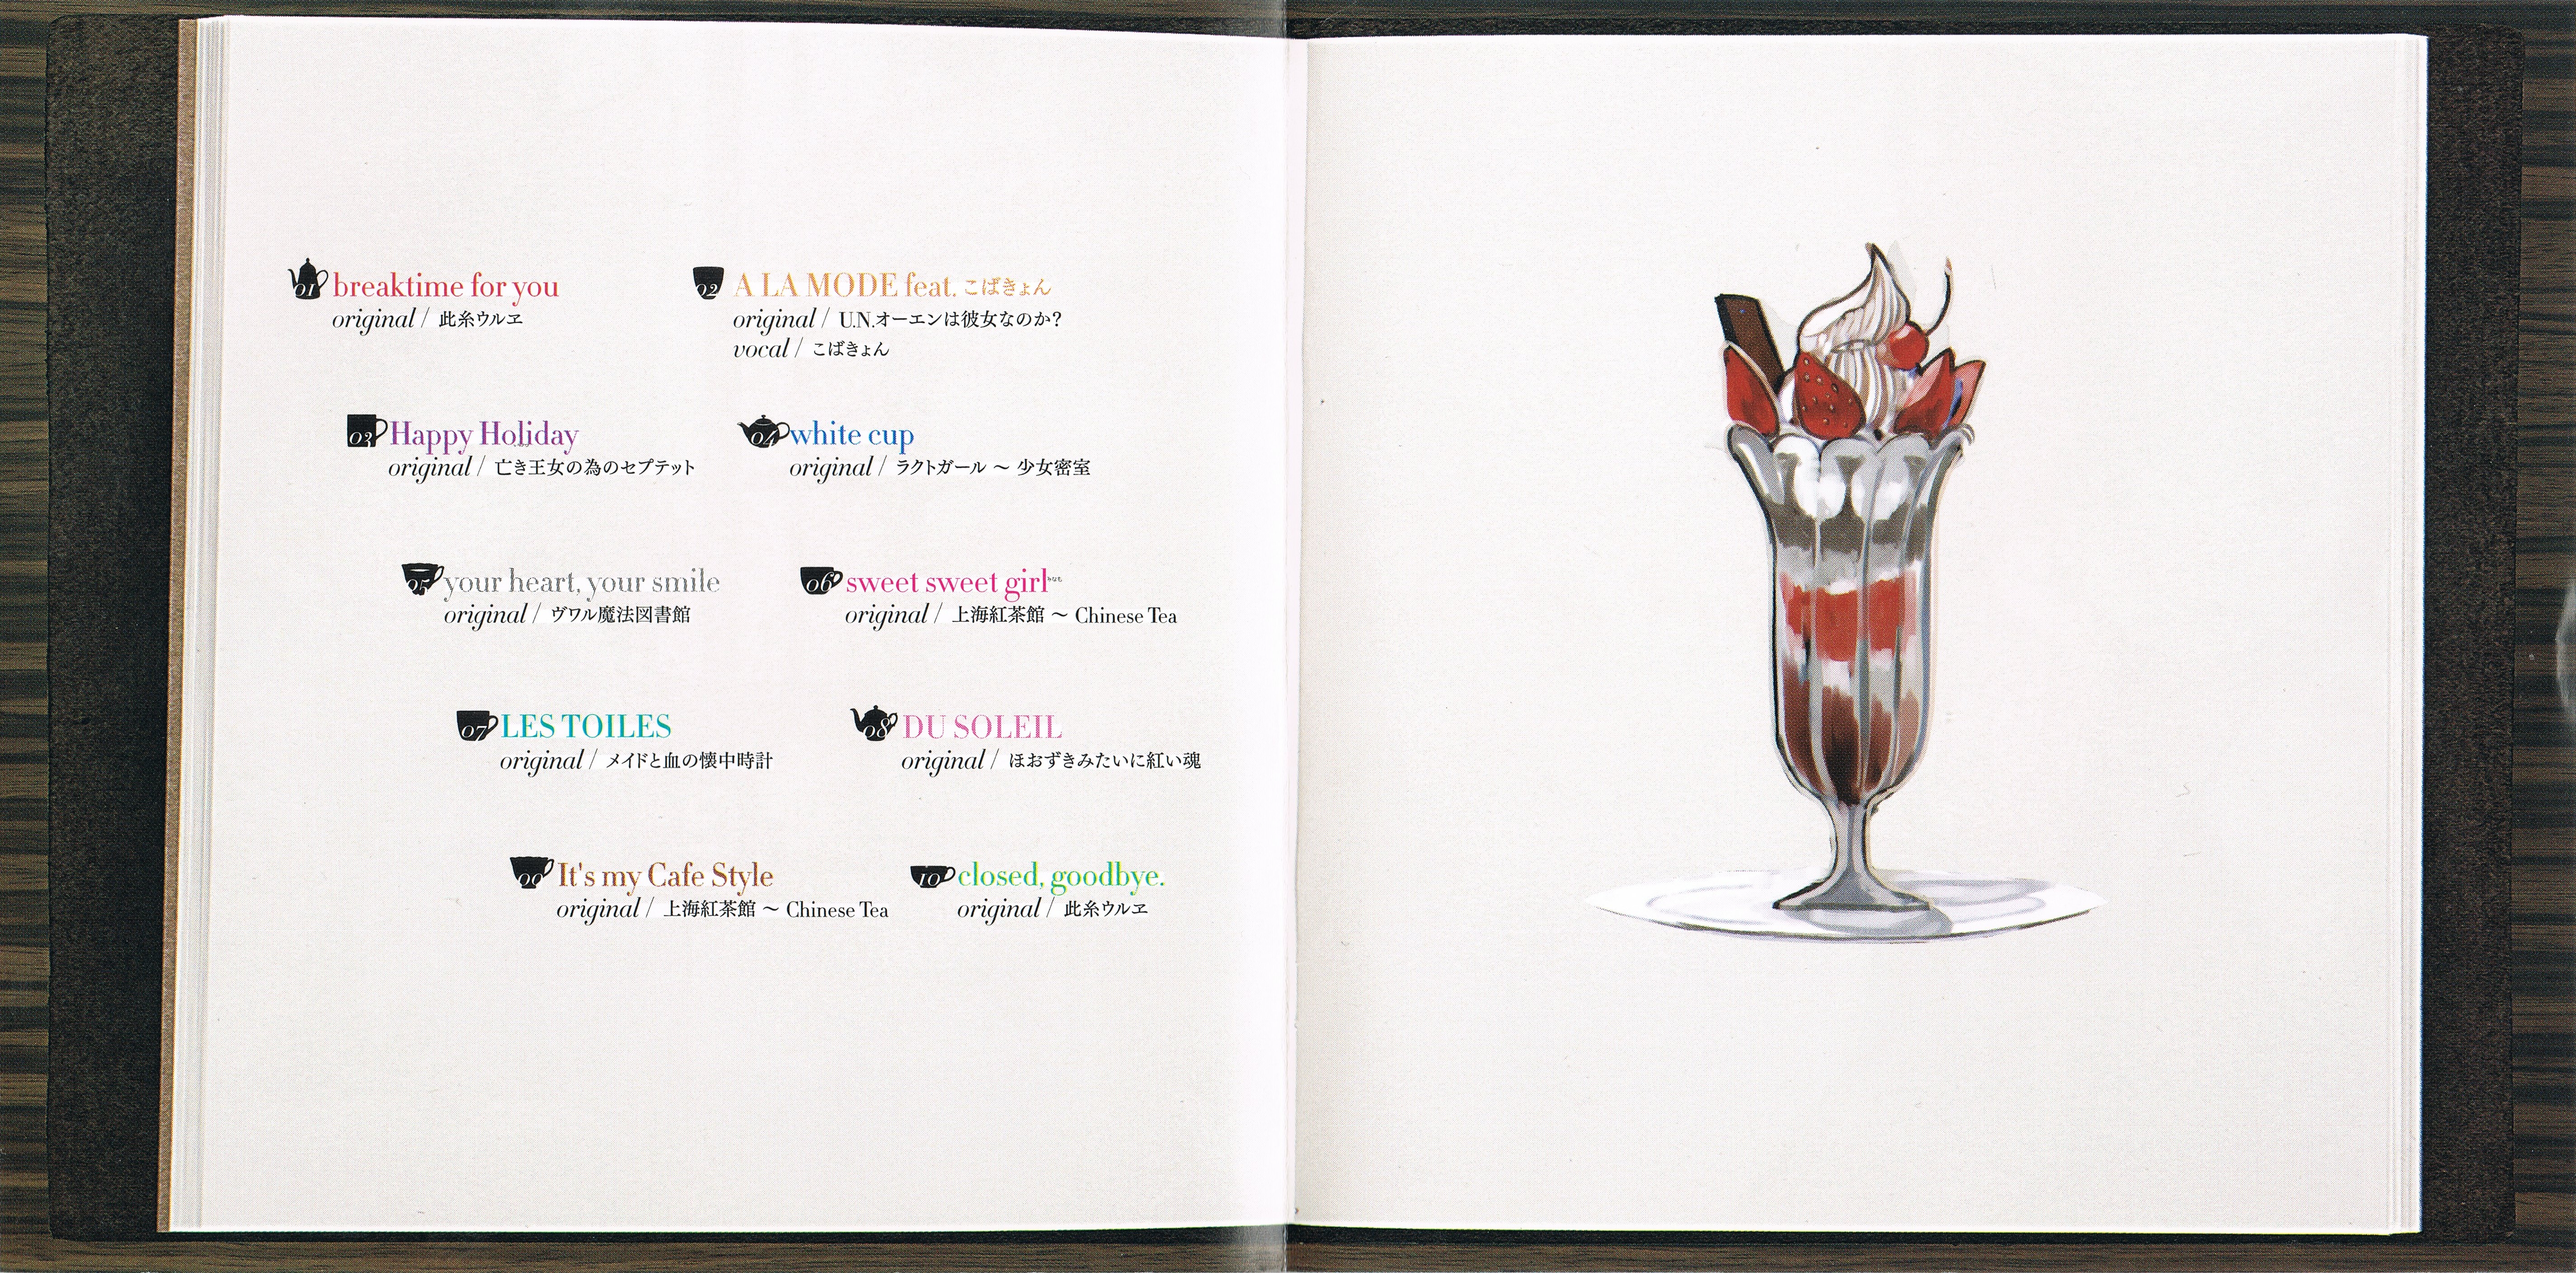 01 breaktime for you
original / 此糸ウルヱ
02 A LA MODE feat. こばきょん
original / U.N.オーエンは彼女なのか?
vocal / こばきょん
03 Happy Holiday
original / 亡き王女の為のセプテット
04 white cup
original / ラクトガール ～ 少女密室
05 your heart, your smile
original / ヴワル魔法図書館
06 sweet sweet girl
original / 上海紅茶館 ～ Chinese Tea
07 LES TOILES
original / メイドと血の懐中時計
08 DU SOLEIL
original / ほおずきみたいに紅い魂
09 It's my Cafe Style
original / 上海紅茶館 ～ Chinese Tea
10 closed, goodbye.
original / 此糸ウルヱ